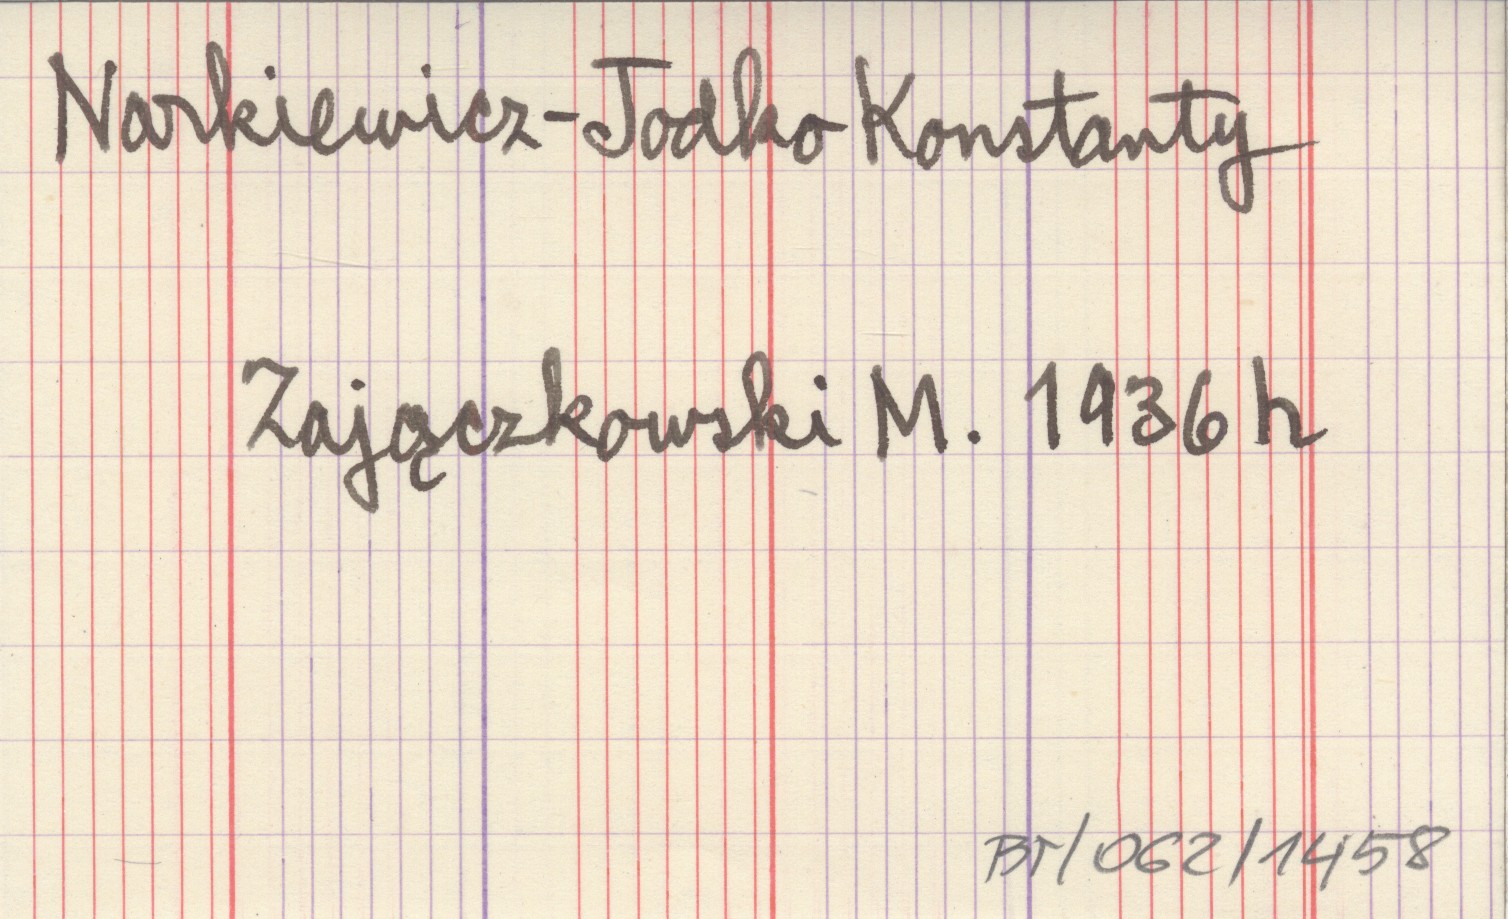 Narkiewicz-Jodko Konstanty
Zajączkowski M. 1936 h
BT/062/1458